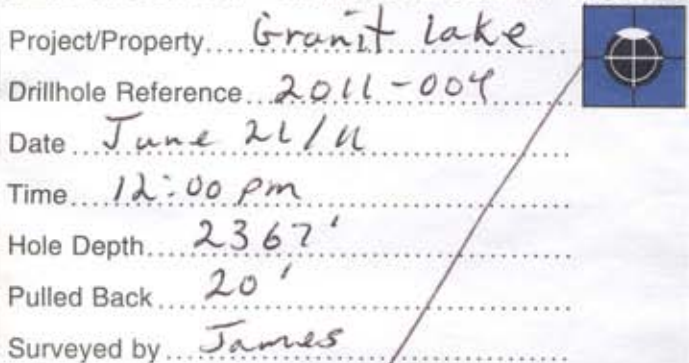 Project/Property Granit Lake
Drillhole Reference 2011-004
Date June 21/11
Time 12:00 pm
Hole Depth 2367'
Pulled Back 20'
Surveyed by James